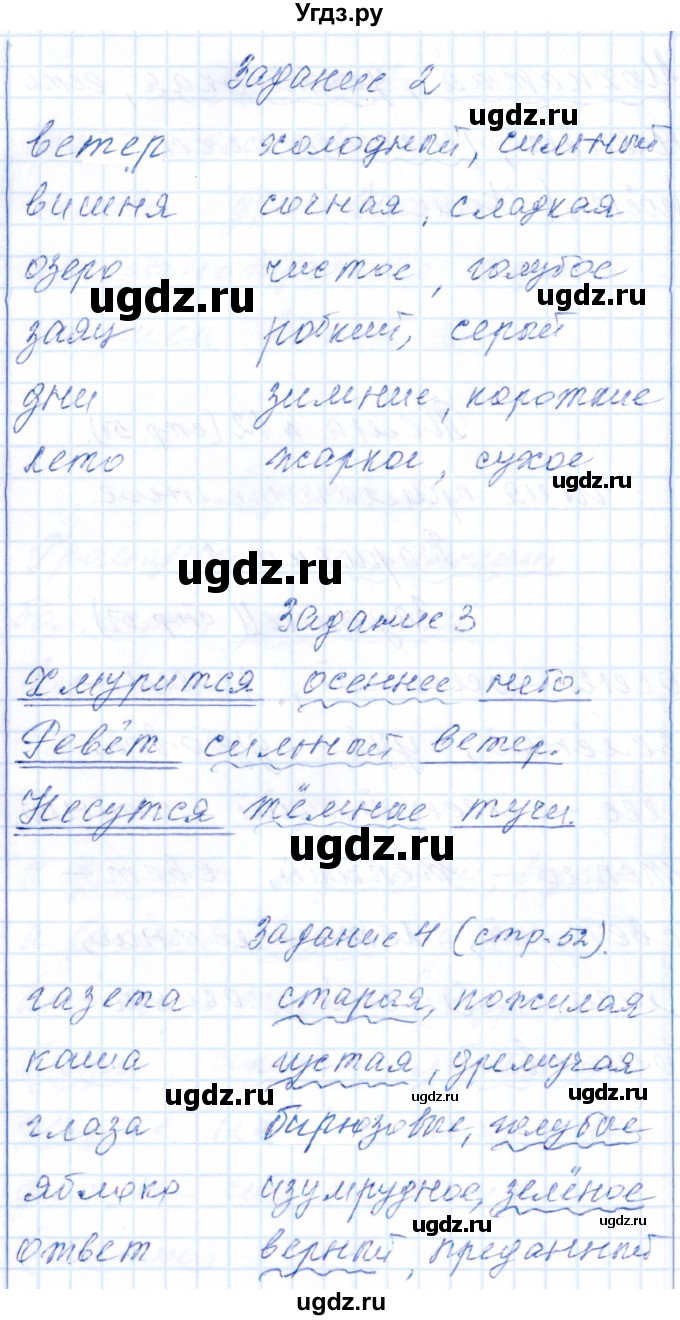 Угдз.ру
Задание 2
ветер холодный, сильный
ugdz.ru
вишня сочная, сладкая
озеро чистое, голубое
ugdz.ru ugdz.ru
заяц робкий, серый
дни зимние, короткие
лето жаркое, сухое
ugdz.ru
ugdz.ru
Задание 3
Хмурится осеннее небо.
Ревёт сильный ветер.
Несутся тёмные тучи.
ugdz.ru
Задание 4 (стр. 52).
газета старая, пожилая
каша густая, дремучая
ugdz.ru ugdz.ru ugdz.ru
глаза бирюзовые, голубые
яблоко изумрудное, зелёное
ugdz.ru ugdz.ru
ответ верный, преданный
ugdz.ru